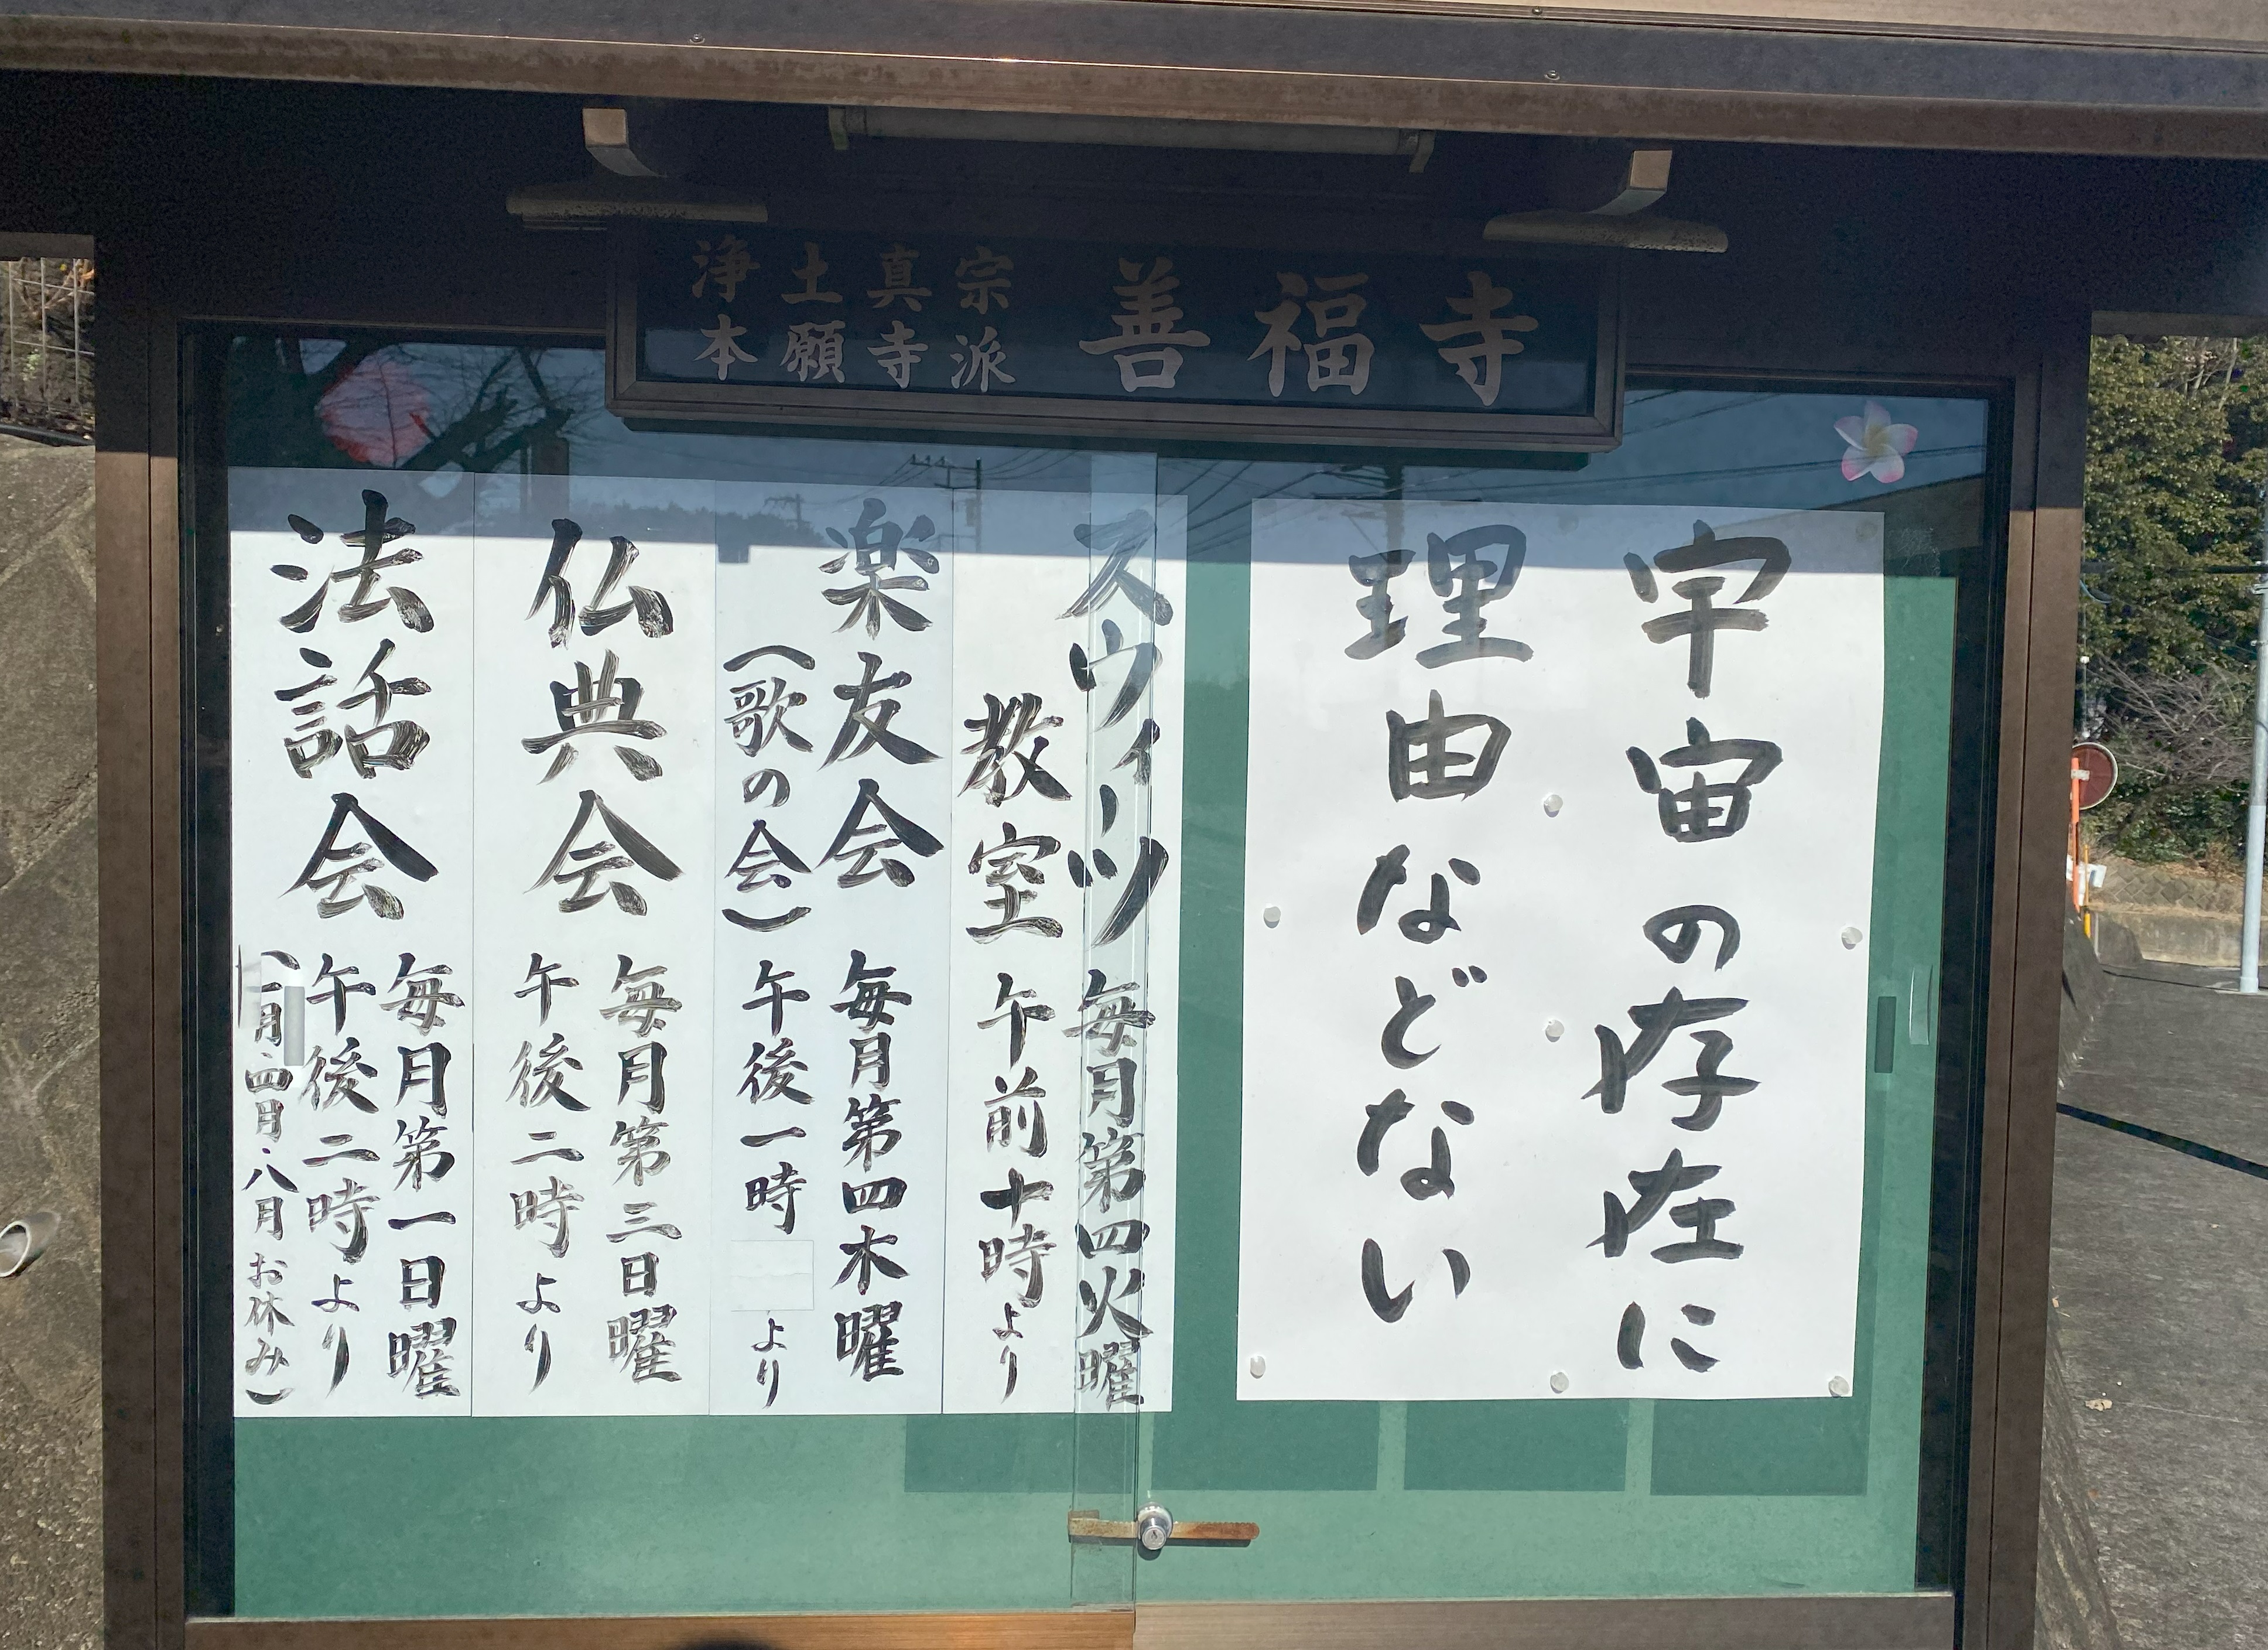 浄土真宗
本願寺派
善福寺
宇宙の存在に
理由などない
スウィーツ
教室
毎月第四火曜
午前十時より
楽友会
(歌の会)
毎月第四木曜
午後一時
より
仏典会
毎月第三日曜
午後二時より
法話会
毎月第一日曜
午後二時より
(一月・四月・八月お休み)